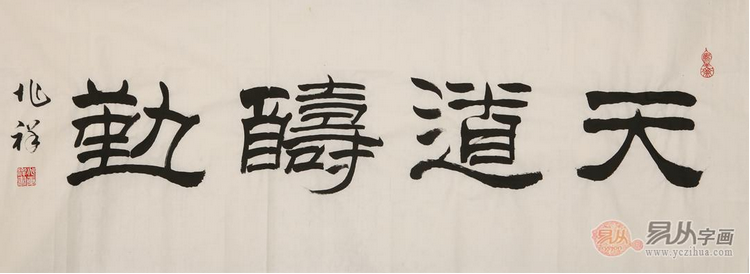 天道酬勤
兆祥
易从
易从字画
www.yczihua.com